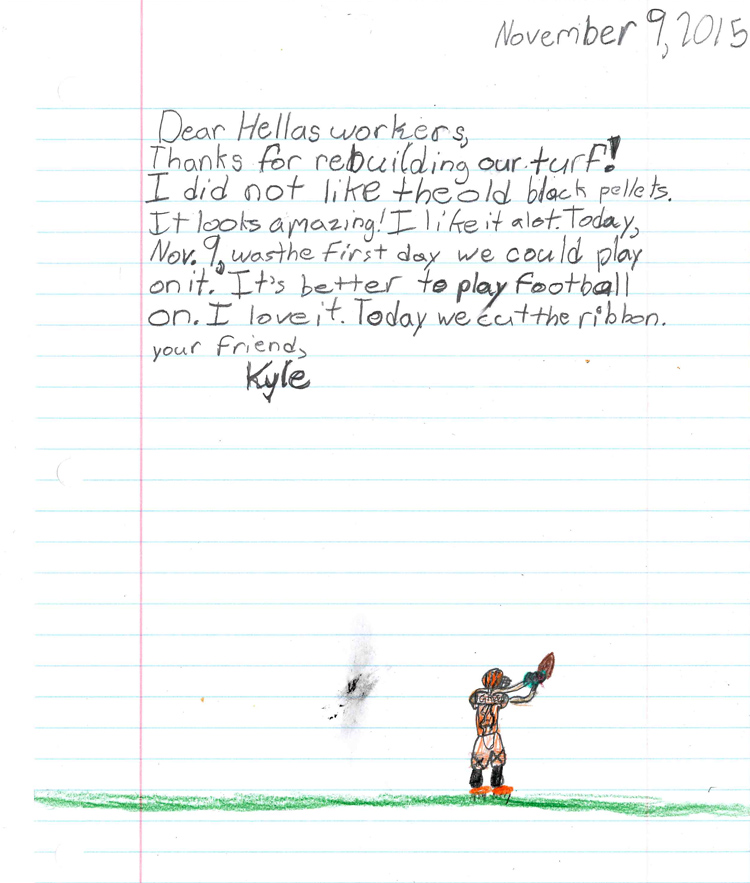 November 9, 2015
Dear Hellas workers,
Thanks for rebuilding our turf!
I did not like the old black pellets.
It looks amazing! I like it alot. Today,
Nov. 9, was the first day we could play
on it. It's better to play football
on. I love it. Today we cut the ribbon.
your friend,
Kyle